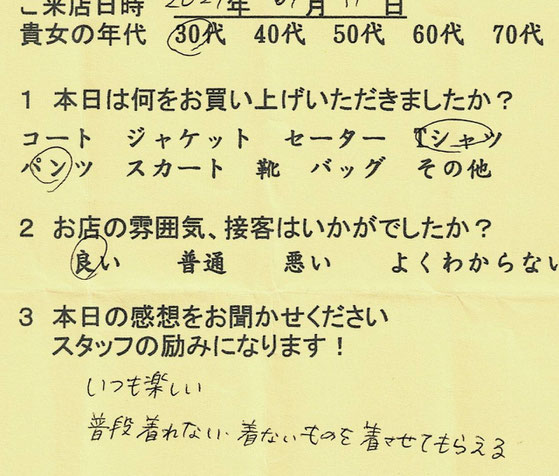 ご来店日時 年 月 日
貴女の年代 30代 40代 50代 60代 70代
1 本日は何をお買い上げいただきましたか？
コート ジャケット セーター Tシャツ
パンツ スカート 靴 バッグ その他
2 お店の雰囲気、接客はいかがでしたか？
良い 普通 悪い よくわからない
3 本日の感想をお聞かせください
スタッフの励みになります！
いつも楽しい
普段着れない、着ないものを着させてもらえる